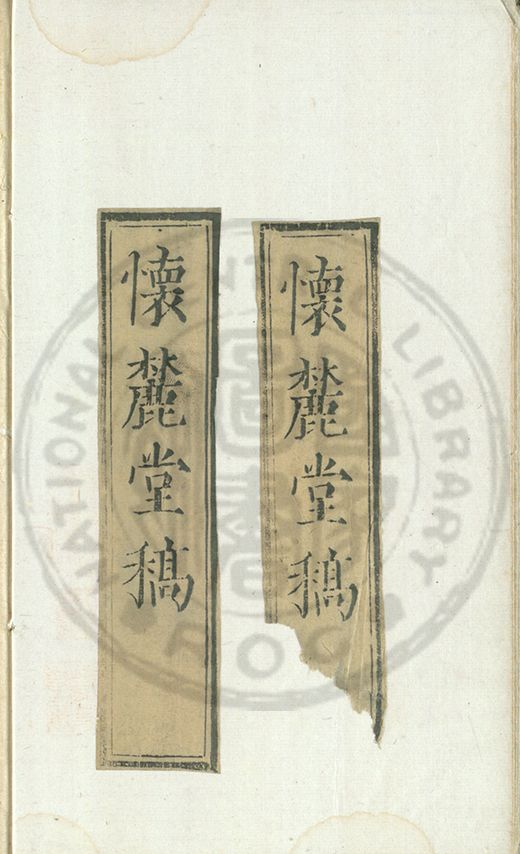 懷麓堂稿
懷麓堂稿
NATIONAL CENTRAL LIBRARY
ROC